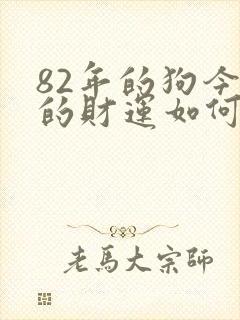 82年的狗今
的財運如何
老馬大宗師